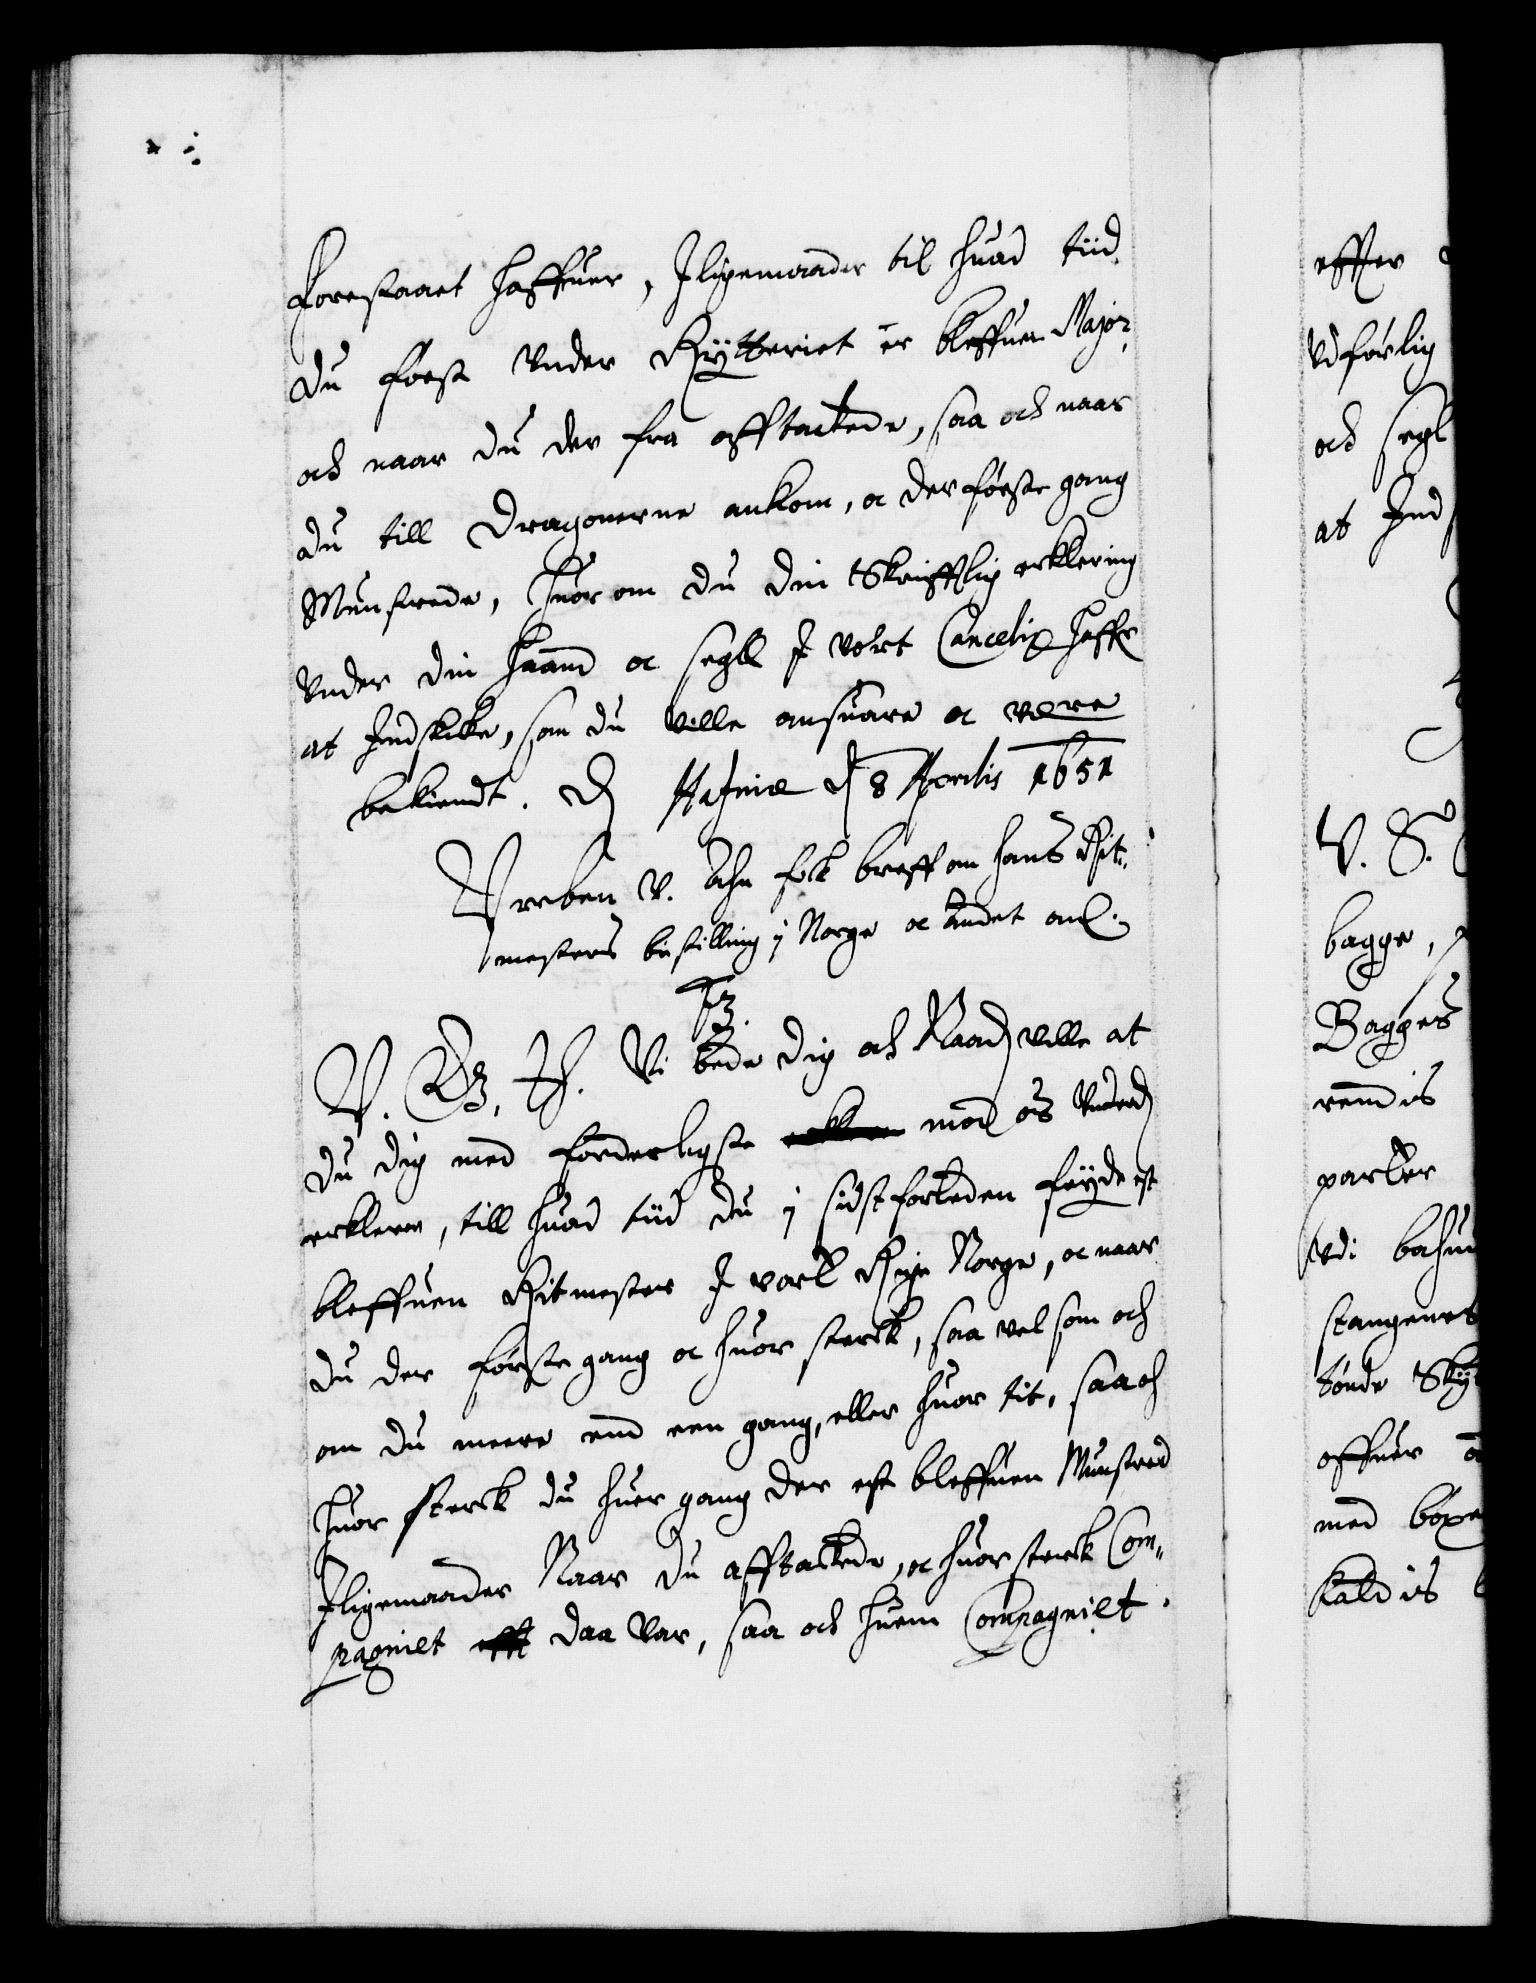 forestaaet haffuer, Jligemaader til huad tiid
du først vnder Rytteriet er bleffuen Major
och naar du der fra afftackede, saa och naar
du till Dragonerne ankom, oc der første gang
Munstrede, huor om du din Skrifftlig erklering
vnder din Haand oc segll J vort Cancelij haffr
at Indskicke, som du ville ansuare oc være
bekiendt. D Hafniæ d 8 Aprilis 1651
Preben v. Ahn fick breff om hans Rit-
mesters bestilling j Norge oc andet anl.
F3.
V. G. T. Vi bede dig och Naad ville at
du dig med forderligste mod os Vnderd
erklere, till huad tiid du j sidst forleden feyde est
bleffuen Ritmester J vort Rige Norge, oc naar
du der første gang oc huor sterck, saa vel som och
om du meere end een gang, eller huor tit, saa och
huor sterck du huer gang der est bleffuen Munstred
Jligemaader Naar du afftackede, oc huor sterck Com-
pagniet daa var, saa och huem Compagniet
effter
vdførlig
och segl
at Ind
V. S.
bagge,
Bagges
rendis
parter
vdi bahu
stangenes
tønde Sky
offuer
med
kaldis